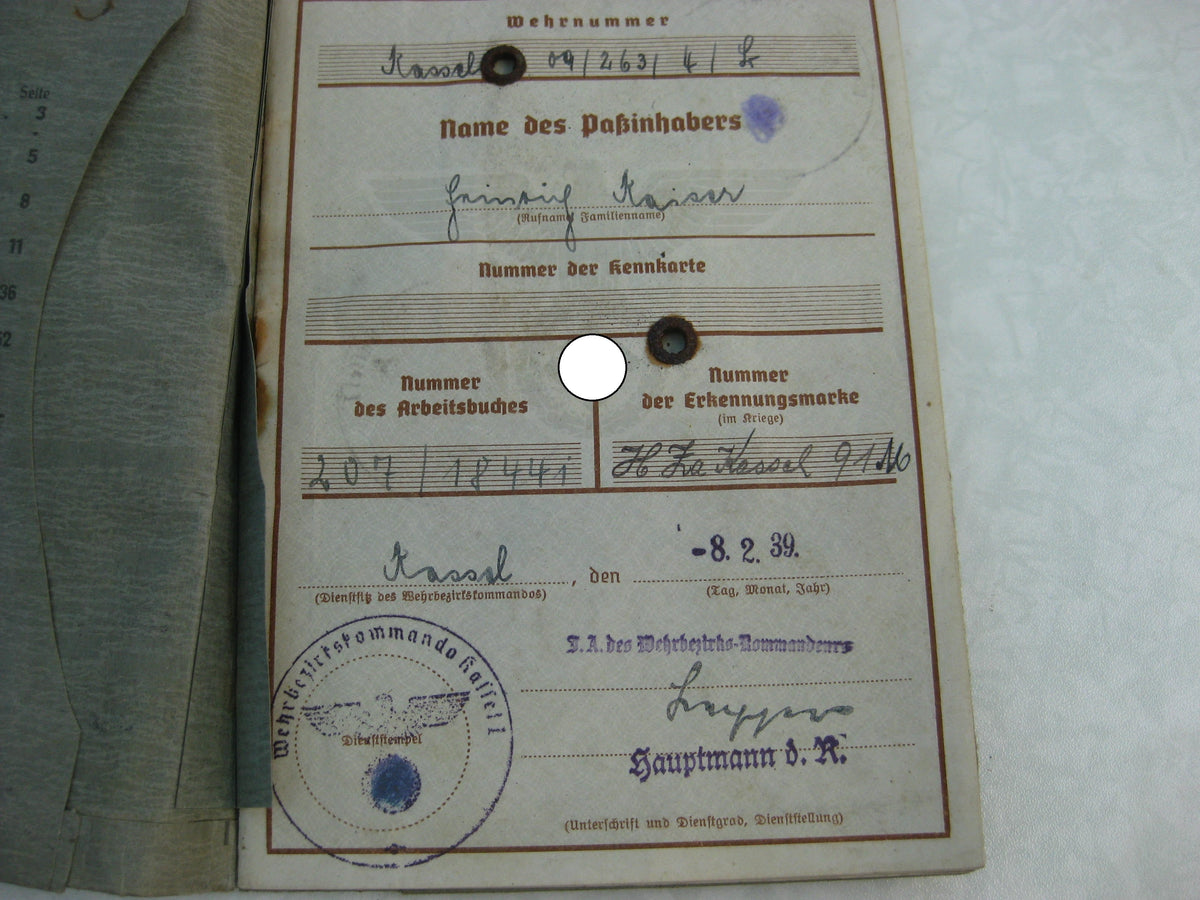 Seite
3
5
8
11
36
52
Wehrnummer
Kassel 09/263/4/
Name des Paßinhabers
Heinrich Kaiser
(Rufname Familienname)
Nummer der Kennkarte
Nummer
des Arbeitsbuches
Nummer
der Erkennungsmarke
(im Kriege)
207/18441
H Za Kassel 91
Kassel, den -8. 2. 39.
(Dienstsitz des Wehrbezirkskommandos)
(Tag, Monat, Jahr)
I.A. des Wehrbezirks-Kommandeurs
Hauptmann d. R.
(Unterschrift und Dienstgrad, Dienststellung)
Wehrbezirkskommando Kassel I
Dienststempel